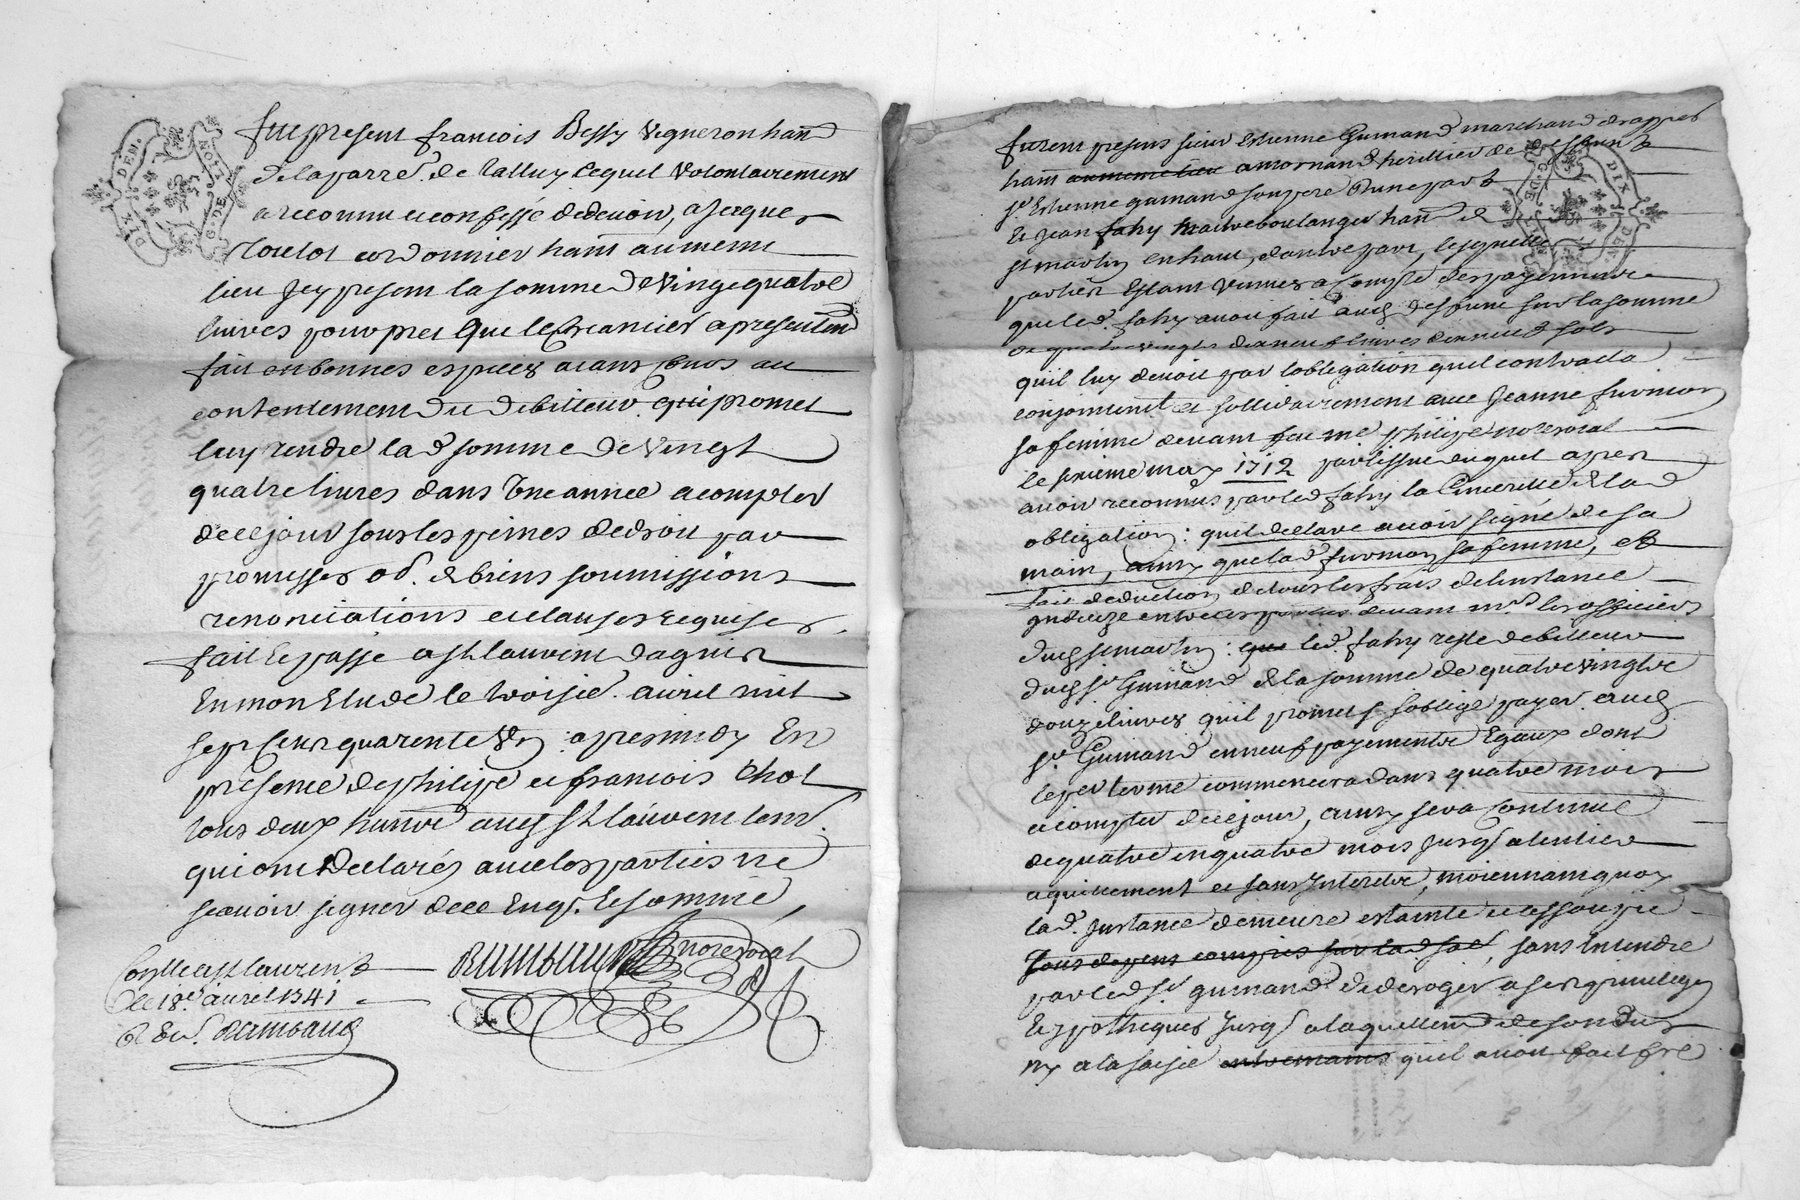 DIX DEM.
G. DE LION
fut present francois Bessy vigneron hant
de la parr.e de talluy lequel volontairement
a reconnu et confessé de devoir, a Jacques
cordonnier hant au meme
lieu Jcy present la somme de vingt quatre
livres pour pret que le creancier a presentem
fait en bonnes espeices aiant cours au
contentement du debitteur qui promet
luy rendre la d somme de vingt
quatre livres dans une année a compter
de ce jour sous les peines de droit par
promisses ob. de biens soumissions
renonciations et clauses requises
fait et passé a St laurent dagny
en mon Etude le troisie. avril mil
sept cent quarente un apres midy En
presence de philipe et francois Chol
tous deux aud St laurent tem.
qui ont declarés avec les parties ne
scavoir signer de ce Enq. et sommé
Raimbaud
Conlle a St laurent
le 18e avril 1741
Raimbaud
furent presens sieur Estienne Guinand marchand drappier
hant au meme lieu a mornand heritier de
sr Estienne guinand son pere d'une part
Et Jean fahy maitre boulanger hant de
st martin en haut, dautre part, lesquelles
parties Estant venues a compte des payemens
que led. fahy avoit fait aud deffunt sur la somme
de quatre vingts dix neuf livres dixneuf sols
quil luy devoit par lobligation quil contracta
conjointemt et sollidairement avec Jeanne furnion
sa femme devant feu me philipe noreroal
le sixieme may 1712 par lissue duquel apres
avoir reconnus par led fahy la sincerité de la d
obligation: quil declare avoir signé de sa
main, ainsy que la d furnion sa femme, et
fait deduction de tous les frais de linstance
entre les parties devant mrs les officiers
dud st martin: que led. fahy reste debitteur
dud sr Guinand de la somme de quatre vingt
douze livres quil promet soblige payer aud
sr Guinand en neuf payements Egaux dont
le per terme commencera dans quatre mois
a compter de ce jour, ainsy sera continué
de quatre en quatre mois jusq a lentier
aquittement et sans Interetz, moiennant quoy
la d. Jnstance demeure estainte et assoupie
sans depens compris sur la d , sans entendre
par led sr guinand de deroger a ses privileges
Et ypotheques jusq a laquittemt de son du
ny a la saisie entremains quil avoit fait fre
DIX DEN.
G. DE LION